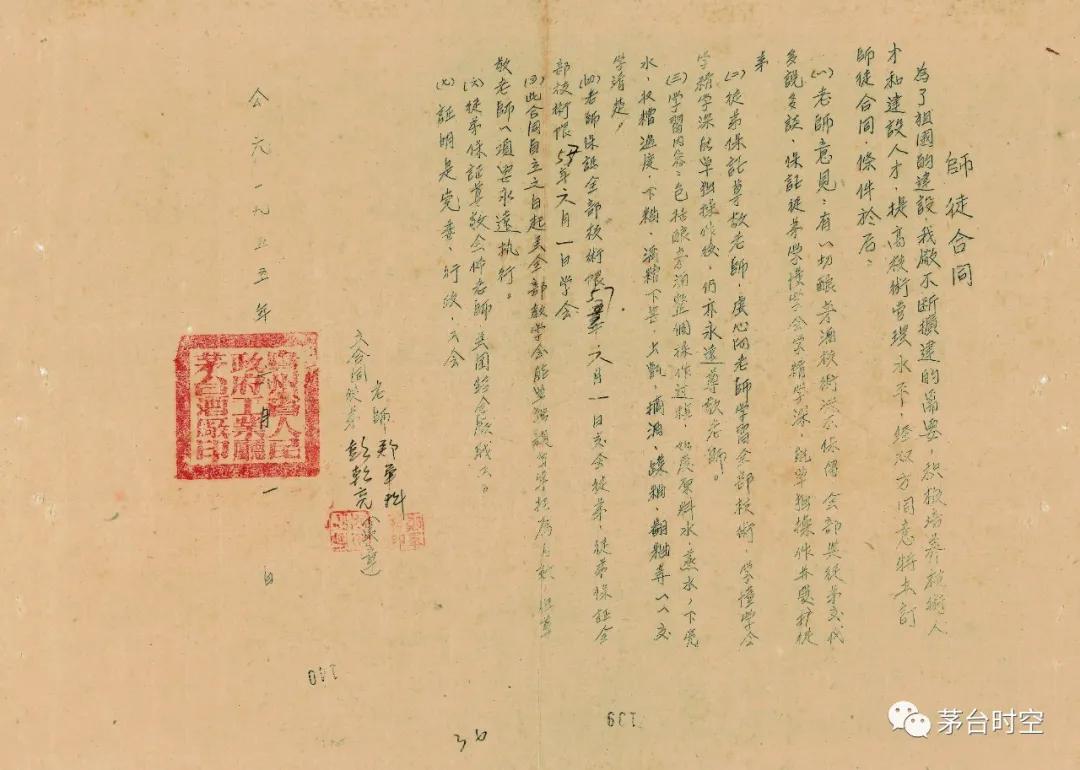 師徒合同
為了祖國的建設,我廠不斷擴建的需要,积极培养技術人
才和建設人才,提高技術管理水平,經双方同意特去訂
師徒合同,條件於后:
(一)老師意見:有以切釀茅酒技術决不保留 全部與徒弟交代
多說多談,保証徒弟學懂學会學精學深,能單独操作并愛护徒
弟
(二)徒弟保証尊敬老師,虚心向老師學習全部技術,學懂學会
學精學深能單独操作後,仍亦永遠尊敬老師。
(三)學習内容:包括釀茅酒整個操作过程,如度原料水,蒸水,下亮
水,收糟温度,下糟,酒糟下窖,上甑,摘酒,踩糊,翻糊等以交
學清楚。
(四)老師保証全部技術限57年六月一日交会徒弟,徒弟保証全
部技術限57年六月一日学会
(五)此合同自立之日起至全部教学会能單獨操
敬老師以須要永遠执行。
(六)徒弟保証尊敬会仰老師
(七)証明是党委,行政,工会
立合同 老師 郑軍科
徒弟 彭乾亮
公元一九五五年 月一日
貴州省人民
政府工業廳
茅台酒廠印
140
139
36
茅台时空